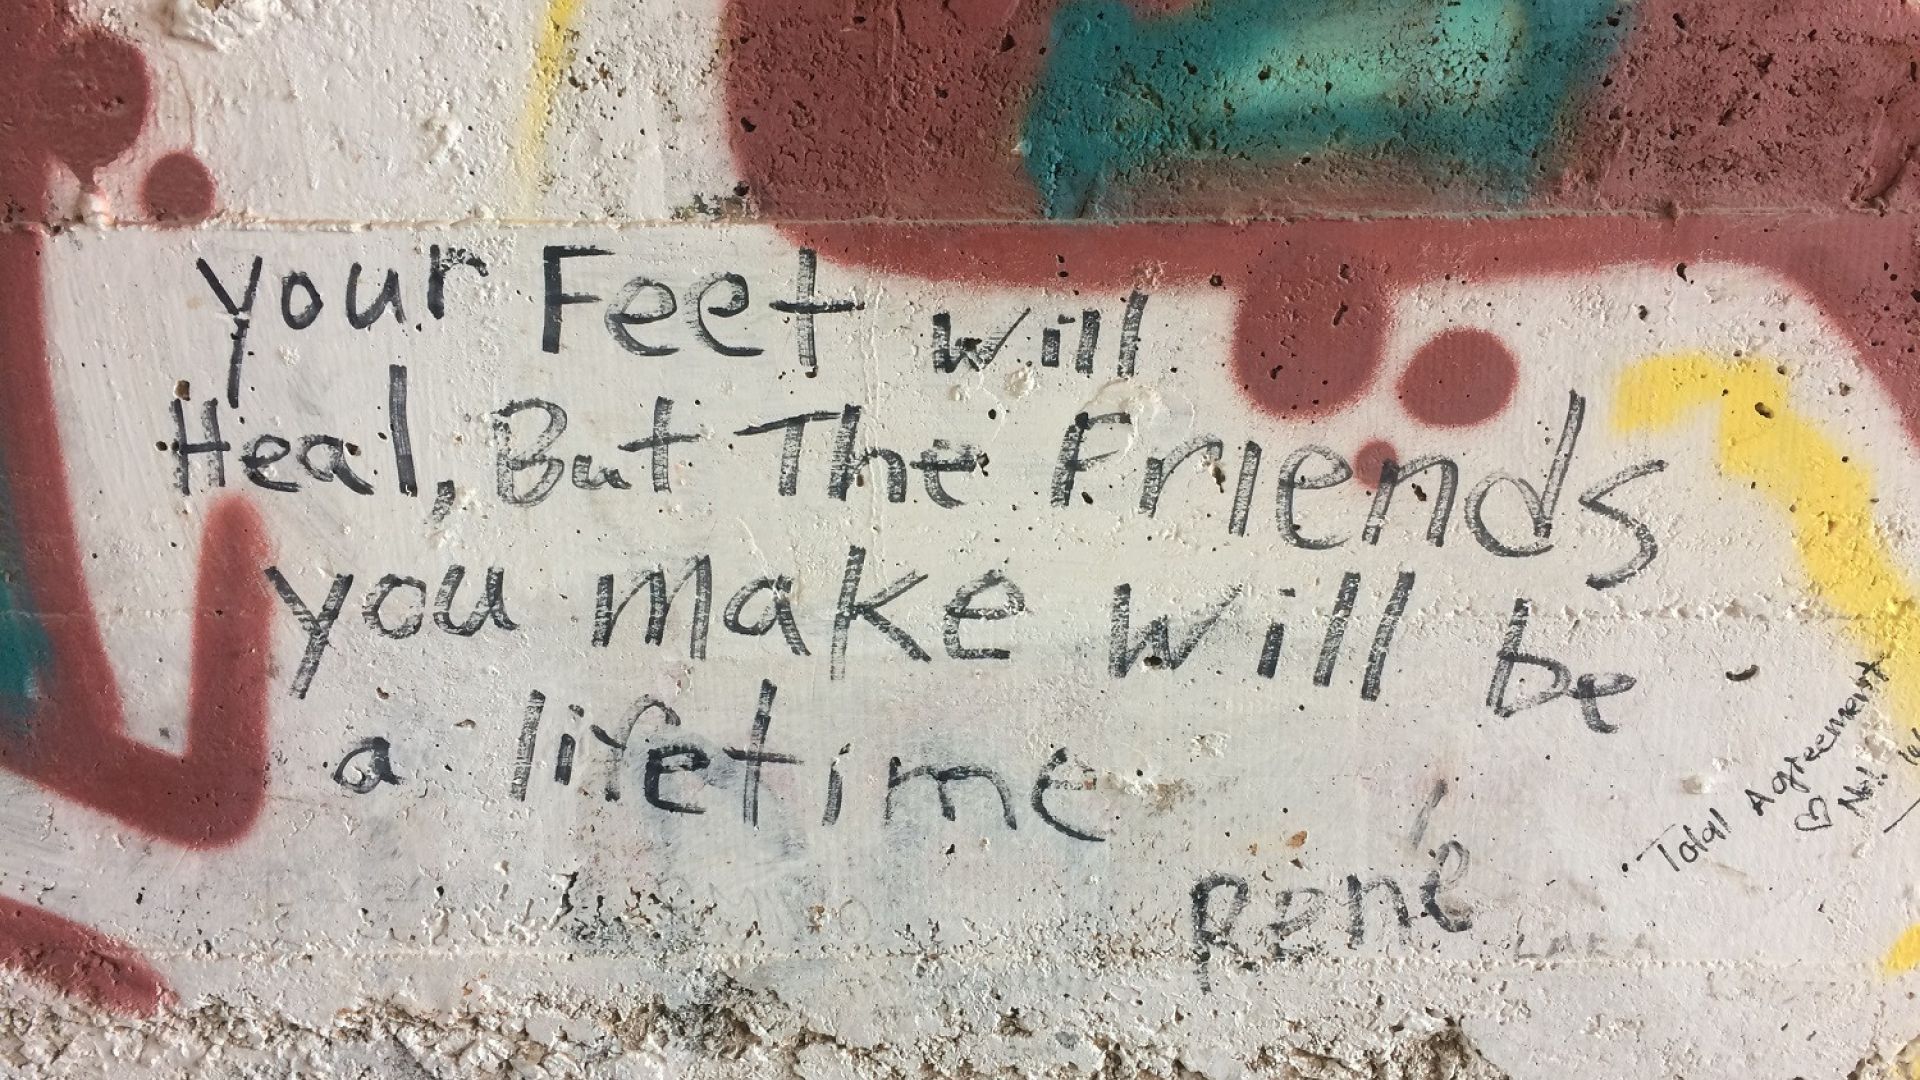 your Feet will
Heal, But The Friends
you make will be
a lifetime
René
Total Agreement
♡
LUKA